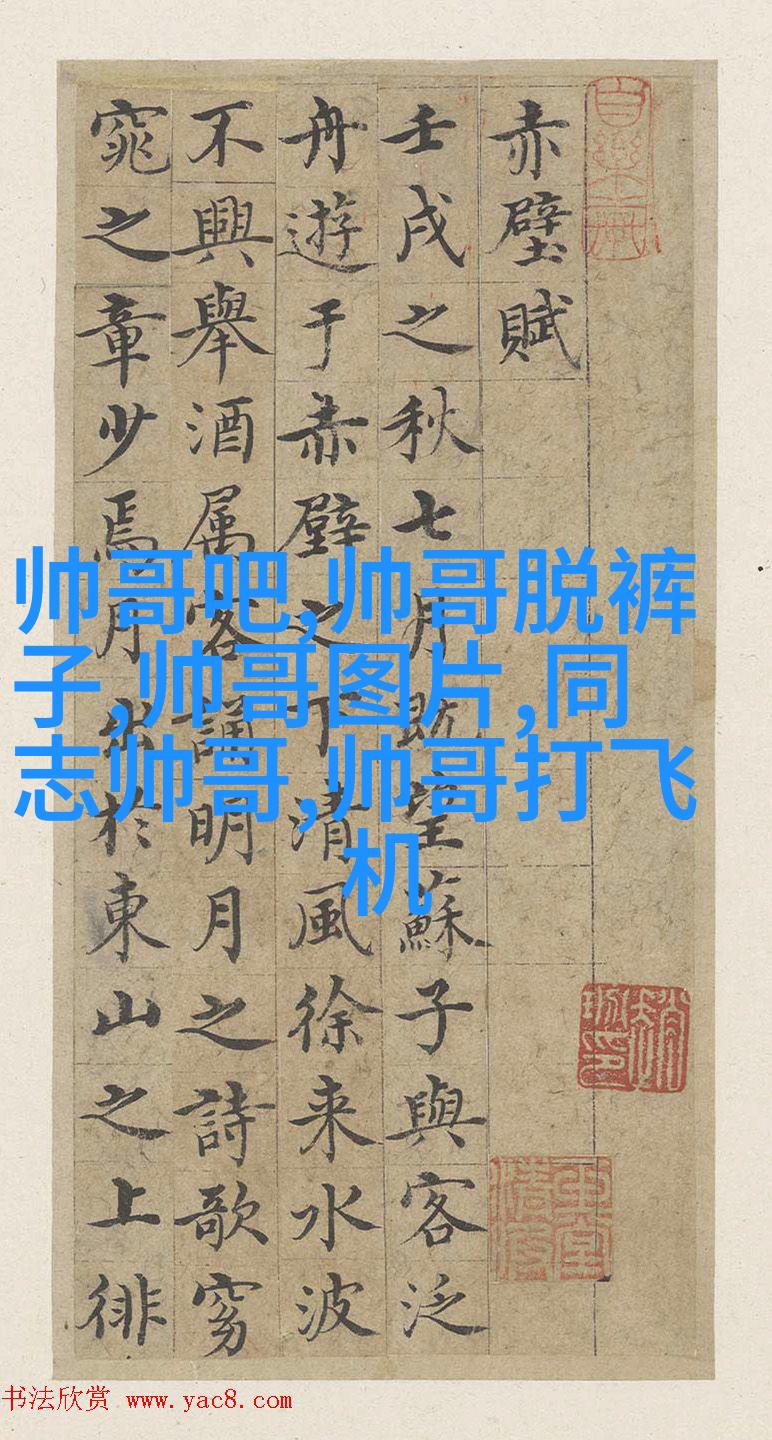 赤壁賦
壬戌之秋七月既望蘇子與客泛
舟遊于赤壁之下清風徐来水波
不興舉酒属客誦明月之詩歌窈
窕之章少焉月出於東山之上徘
帅哥吧,帅哥脱裤
子,帅哥图片,同
志帅哥,帅哥打飞
机
书法欣赏 www.yac8.com